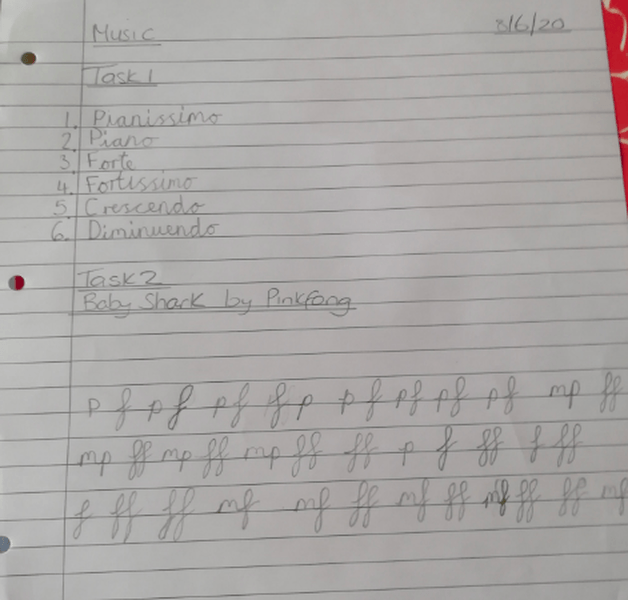 Music 3/6/20
Task 1
1. Pianissimo
2. Piano
3. Forte
4. Fortissimo
5. Crescendo
6. Diminuendo
Task 2
Baby Shark by Pinkfong
p f p f p f f p p f p f p f p f mp ff
mp ff mp ff mp ff ff p f ff f ff
f ff ff mf mf ff mf ff mf ff ff mf